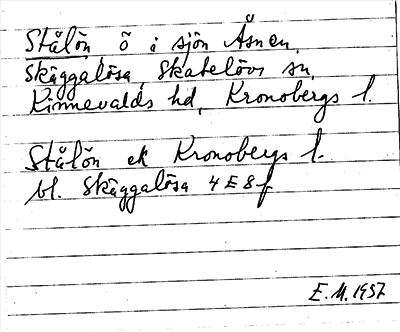 Stålön, ö i sjön Åsnen,
Skäggalösa, Skatelövs sn,
Kinnevalds hd, Kronobergs l.
Stålön ek Kronobergs l.
bl. Skäggalösa 4E8f
E.M.1957